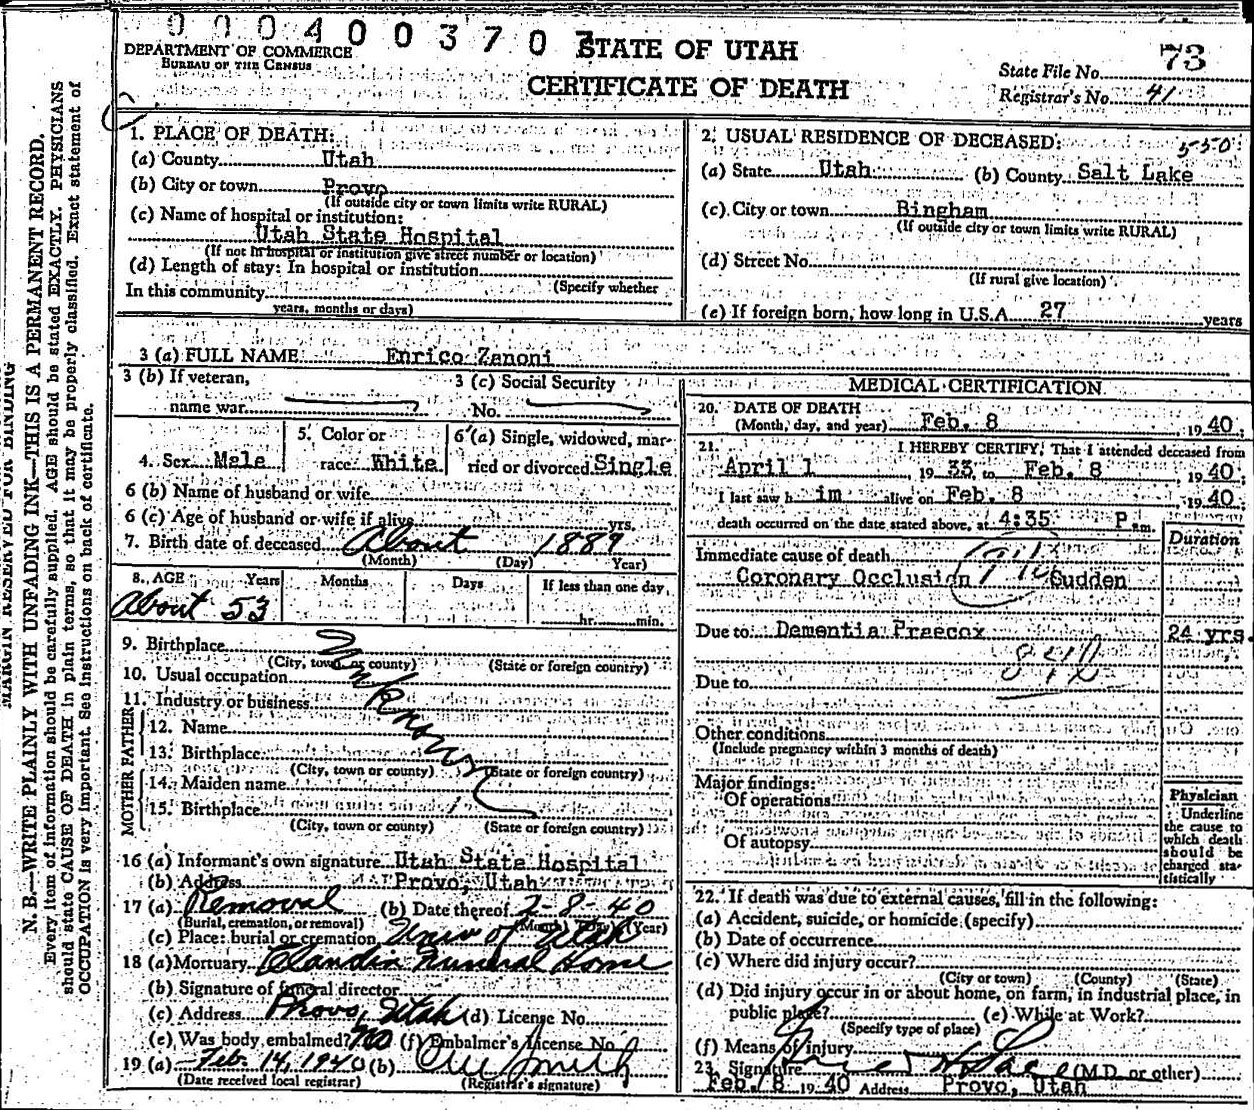 0 0 0 4 0 0 3 7 0 7
DEPARTMENT OF COMMERCE
BUREAU OF THE CENSUS
STATE OF UTAH
CERTIFICATE OF DEATH
73
State File No.
Registrar's No. 41
MARGIN RESERVED FOR BINDING
N. B.—WRITE PLAINLY WITH UNFADING INK—THIS IS A PERMANENT RECORD.
Every item of information should be carefully supplied. AGE should be stated EXACTLY. PHYSICIANS
should state CAUSE OF DEATH in plain terms, so that it may be properly classified. Exact statement of
OCCUPATION is very important. See instructions on back of certificate.
1. PLACE OF DEATH:
(a) County Utah
(b) City or town Provo
(If outside city or town limits write RURAL)
(c) Name of hospital or institution:
Utah State Hospital
(If not in hospital or institution give street number or location)
(d) Length of stay: In hospital or institution
(Specify whether
In this community
years, months or days)
2. USUAL RESIDENCE OF DECEASED:
550
(a) State Utah (b) County Salt Lake
(c) City or town Bingham
(If outside city or town limits write RURAL)
(d) Street No.
(If rural give location)
(e) If foreign born, how long in U.S.A. 27 years
3 (a) FULL NAME Enrico Zanoni
3 (b) If veteran,
name war
3 (c) Social Security
No.
4. Sex Male
5. Color or
race White
6 (a) Single, widowed, mar-
ried or divorced Single
6 (b) Name of husband or wife
6 (c) Age of husband or wife if alive yrs.
7. Birth date of deceased About 1889
(Month) (Day) Year)
8. AGE Years Months Days If less than one day
About 53 hr. min.
9. Birthplace
(City, town or county) (State or foreign country)
10. Usual occupation
11. Industry or business
Unknown
FATHER
12. Name
13. Birthplace
(City, town or county) (State or foreign country)
MOTHER
14. Maiden name
15. Birthplace
(City, town or county) (State or foreign country)
16 (a) Informant's own signature Utah State Hospital
(b) Address Provo, Utah
17 (a) Removal (b) Date thereof 2-8-40
(Burial, cremation, or removal) (Month) (Day) (Year)
(c) Place: burial or cremation Univ of Utah
18 (a) Mortuary Claudin Funeral Home
(b) Signature of funeral director
(c) Address Provo, Utah (d) License No.
(e) Was body embalmed? No (f) Embalmer's License No.
19 (a) Feb. 14, 1940 (b) Smith
(Date received local registrar) (Registrar's signature)
MEDICAL CERTIFICATION
20. DATE OF DEATH
(Month, day, and year) Feb. 8 1940
21. I HEREBY CERTIFY, That I attended deceased from
April 1 1933, to Feb. 8, 1940;
I last saw h im alive on Feb. 8, 1940;
death occurred on the date stated above, at 4:35 P m.
Duration
Immediate cause of death
Coronary Occlusion Sudden
Due to Dementia Praecox 24 yrs.
Due to
Other conditions
(Include pregnancy within 3 months of death)
Major findings:
Of operations
Of autopsy
Physician
Underline
the cause to
which death
should be
charged sta-
tistically
22. If death was due to external causes, fill in the following:
(a) Accident, suicide, or homicide (specify)
(b) Date of occurrence
(c) Where did injury occur?
(City or town) (County) (State)
(d) Did injury occur in or about home, on farm, in industrial place, in
public place? (e) While at Work?
(Specify type of place)
(f) Means of injury
23. Signature (M.D. or other)
Feb. 8 1940 Address Provo, Utah